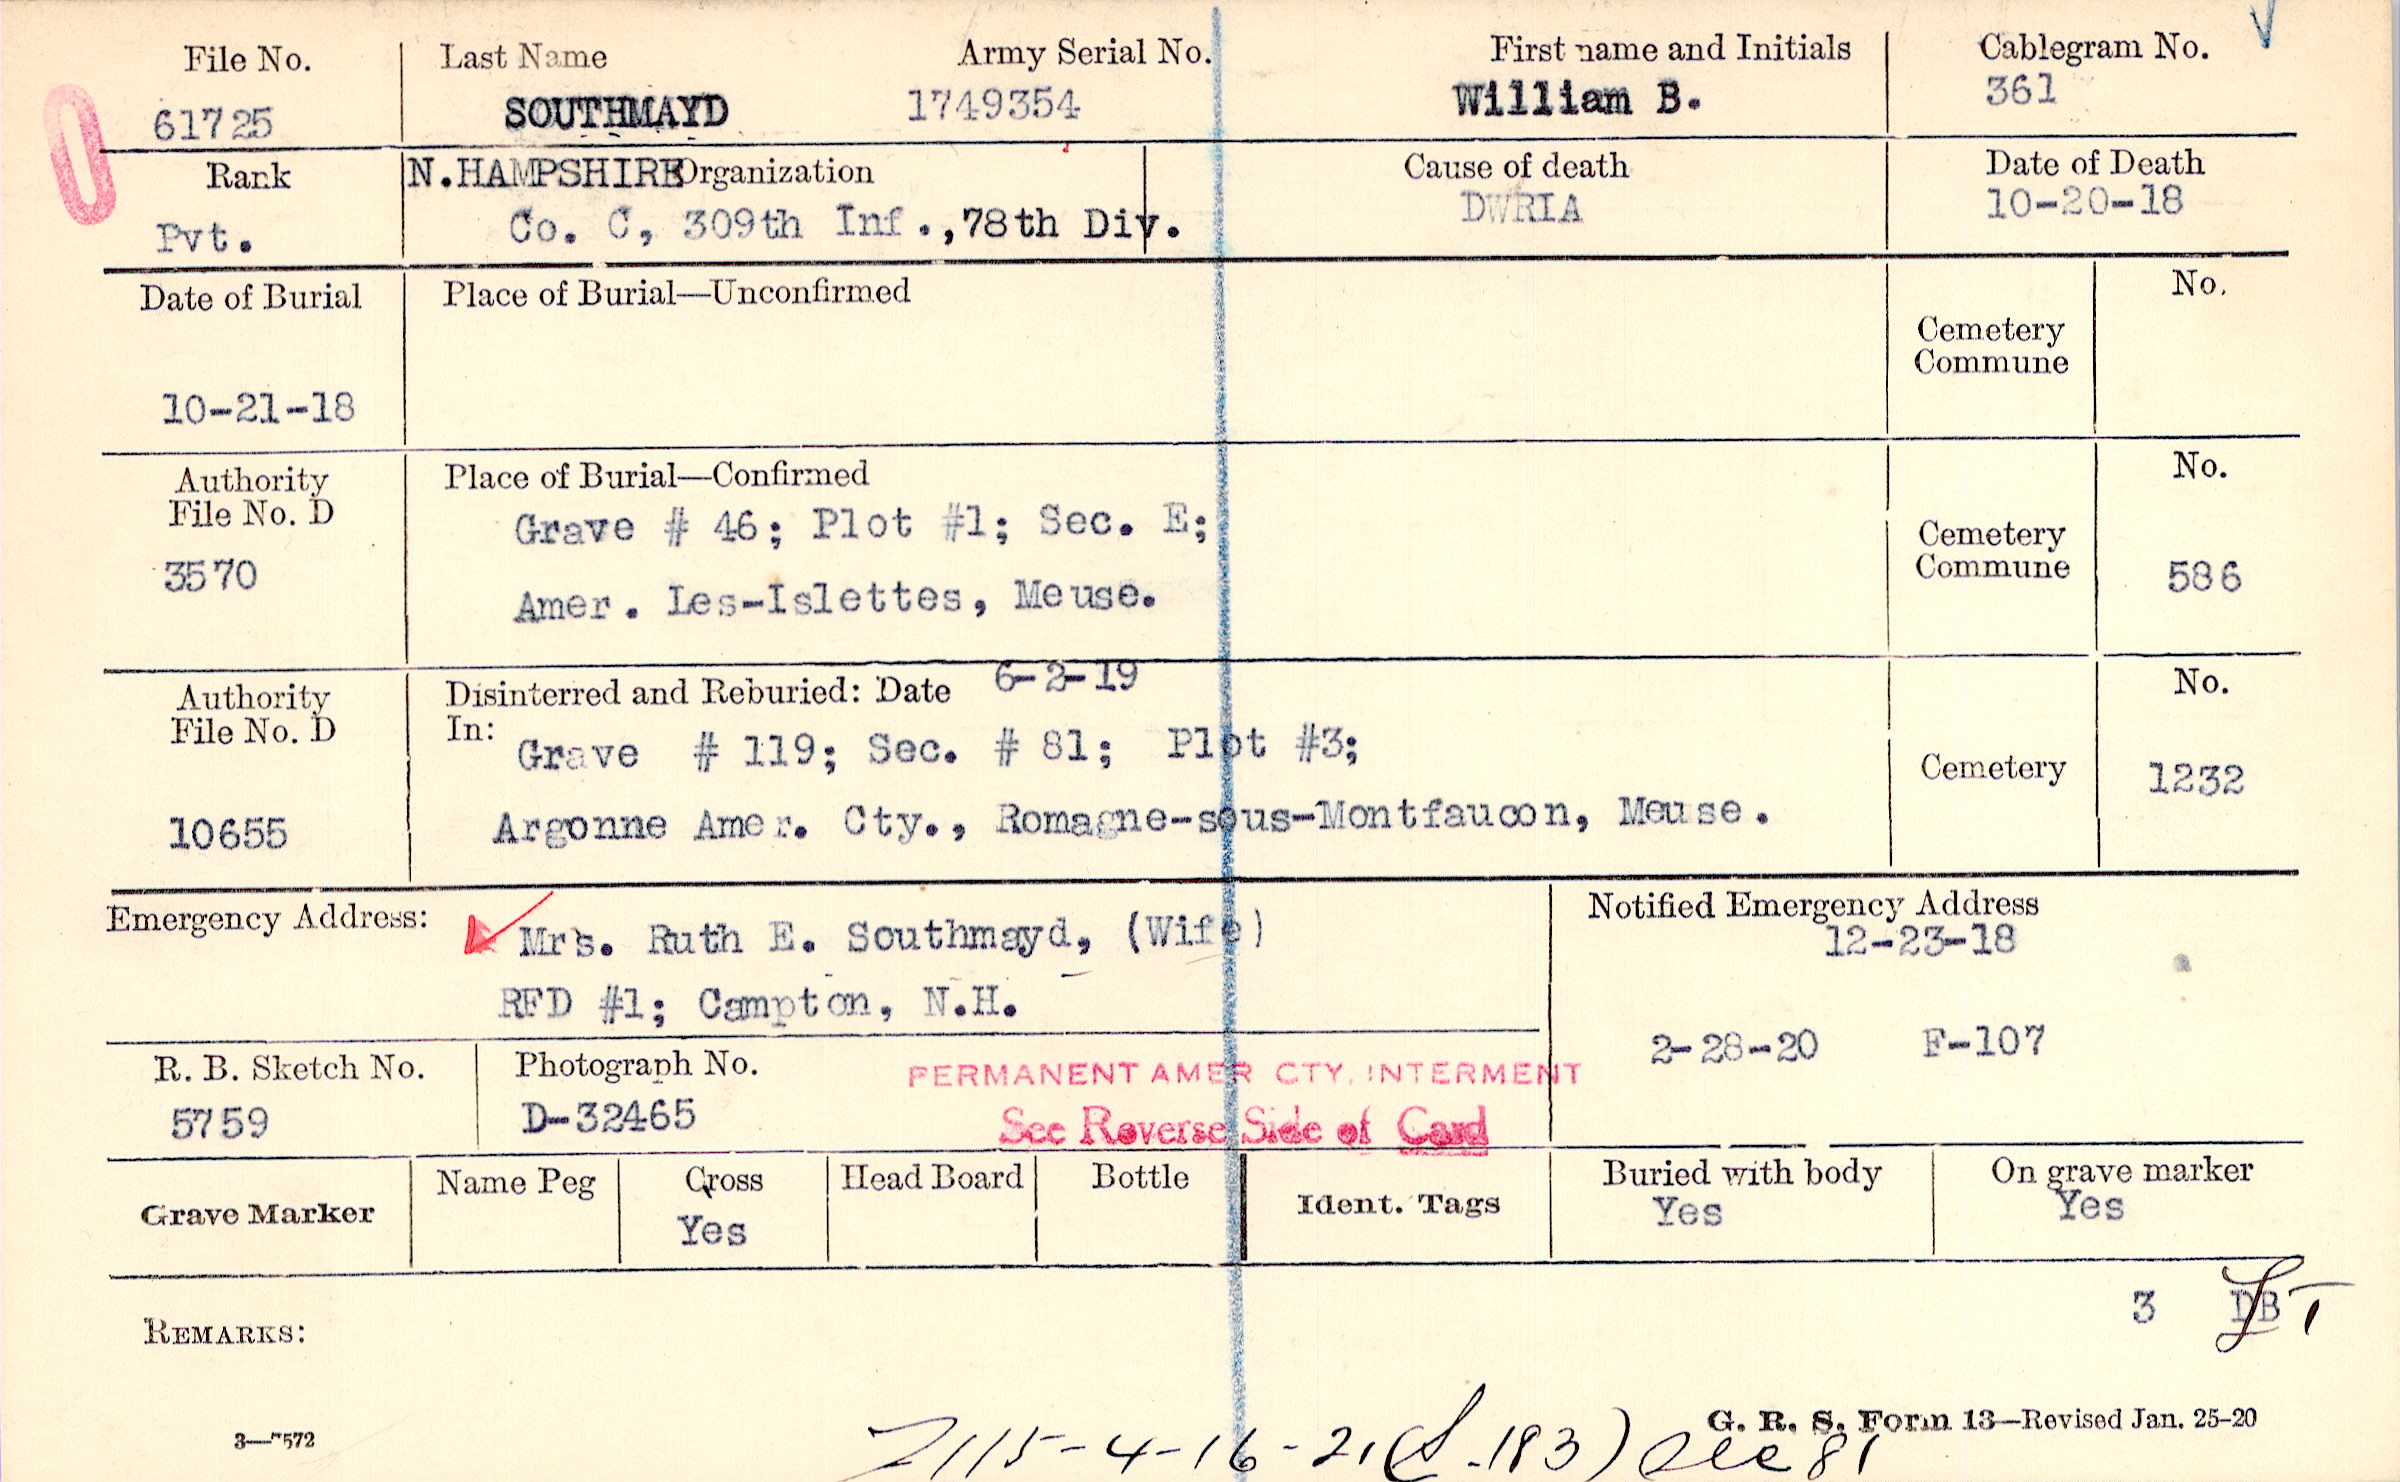 File No. Last Name Army Serial No. First name and Initials Cablegram No.
61725 SOUTHMAYD 1749354 William B. 361
Rank N.HAMPSHIRE Organization Cause of death Date of Death
Pvt. Co. C, 309th Inf.,78th Div. DWRIA 10-20-18
Date of Burial Place of Burial—Unconfirmed No.
Cemetery
Commune
10-21-18
Authority Place of Burial—Confirmed No.
File No. D Grave # 46; Plot #1; Sec. E; Cemetery
3570 Commune 586
Amer. Les-Islettes, Meuse.
Authority Disinterred and Reburied: Date 6-2-19 No.
File No. D In: Grave # 119; Sec. # 81; Plot #3;
Cemetery 1232
10655 Argonne Amer. Cty., Romagne-sous-Montfaucon, Meuse.
Emergency Address: Mrs. Ruth E. Southmayd, (Wife) Notified Emergency Address
12-23-18
RFD #1; Campton, N.H.
2-28-20 F-107
R. B. Sketch No. Photograph No. PERMANENT AMER CTY. INTERMENT
5759 D-32465 See Reverse Side of Card
Grave Marker Name Peg Cross Head Board Bottle Ident. Tags Buried with body On grave marker
Yes Yes Yes
3 DB
REMARKS:
G. R. S. Form 13—Revised Jan. 25-20
3—7572
2115-4-16-21 (S.183) Sec 81